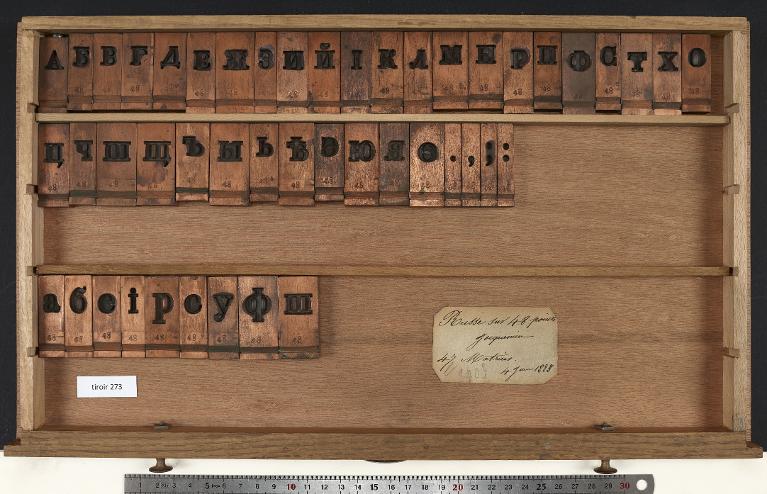 А Б В Г Д Е Ж З И Й І К Л М Н Р П Ф С Т Х О
Ц Ч Ш Щ Ъ Ы Ь Ѣ Э Ю Я Ѳ . , ; :
а б е і р о у ф ш
Russe sur 48 points
Jacquemin
47 Matrices.
4 Juin 1888
tiroir 273
1 2 3 4 5 6 7 8 9 10 11 12 13 14 15 16 17 18 19 20 21 22 23 24 25 26 27 28 29 30